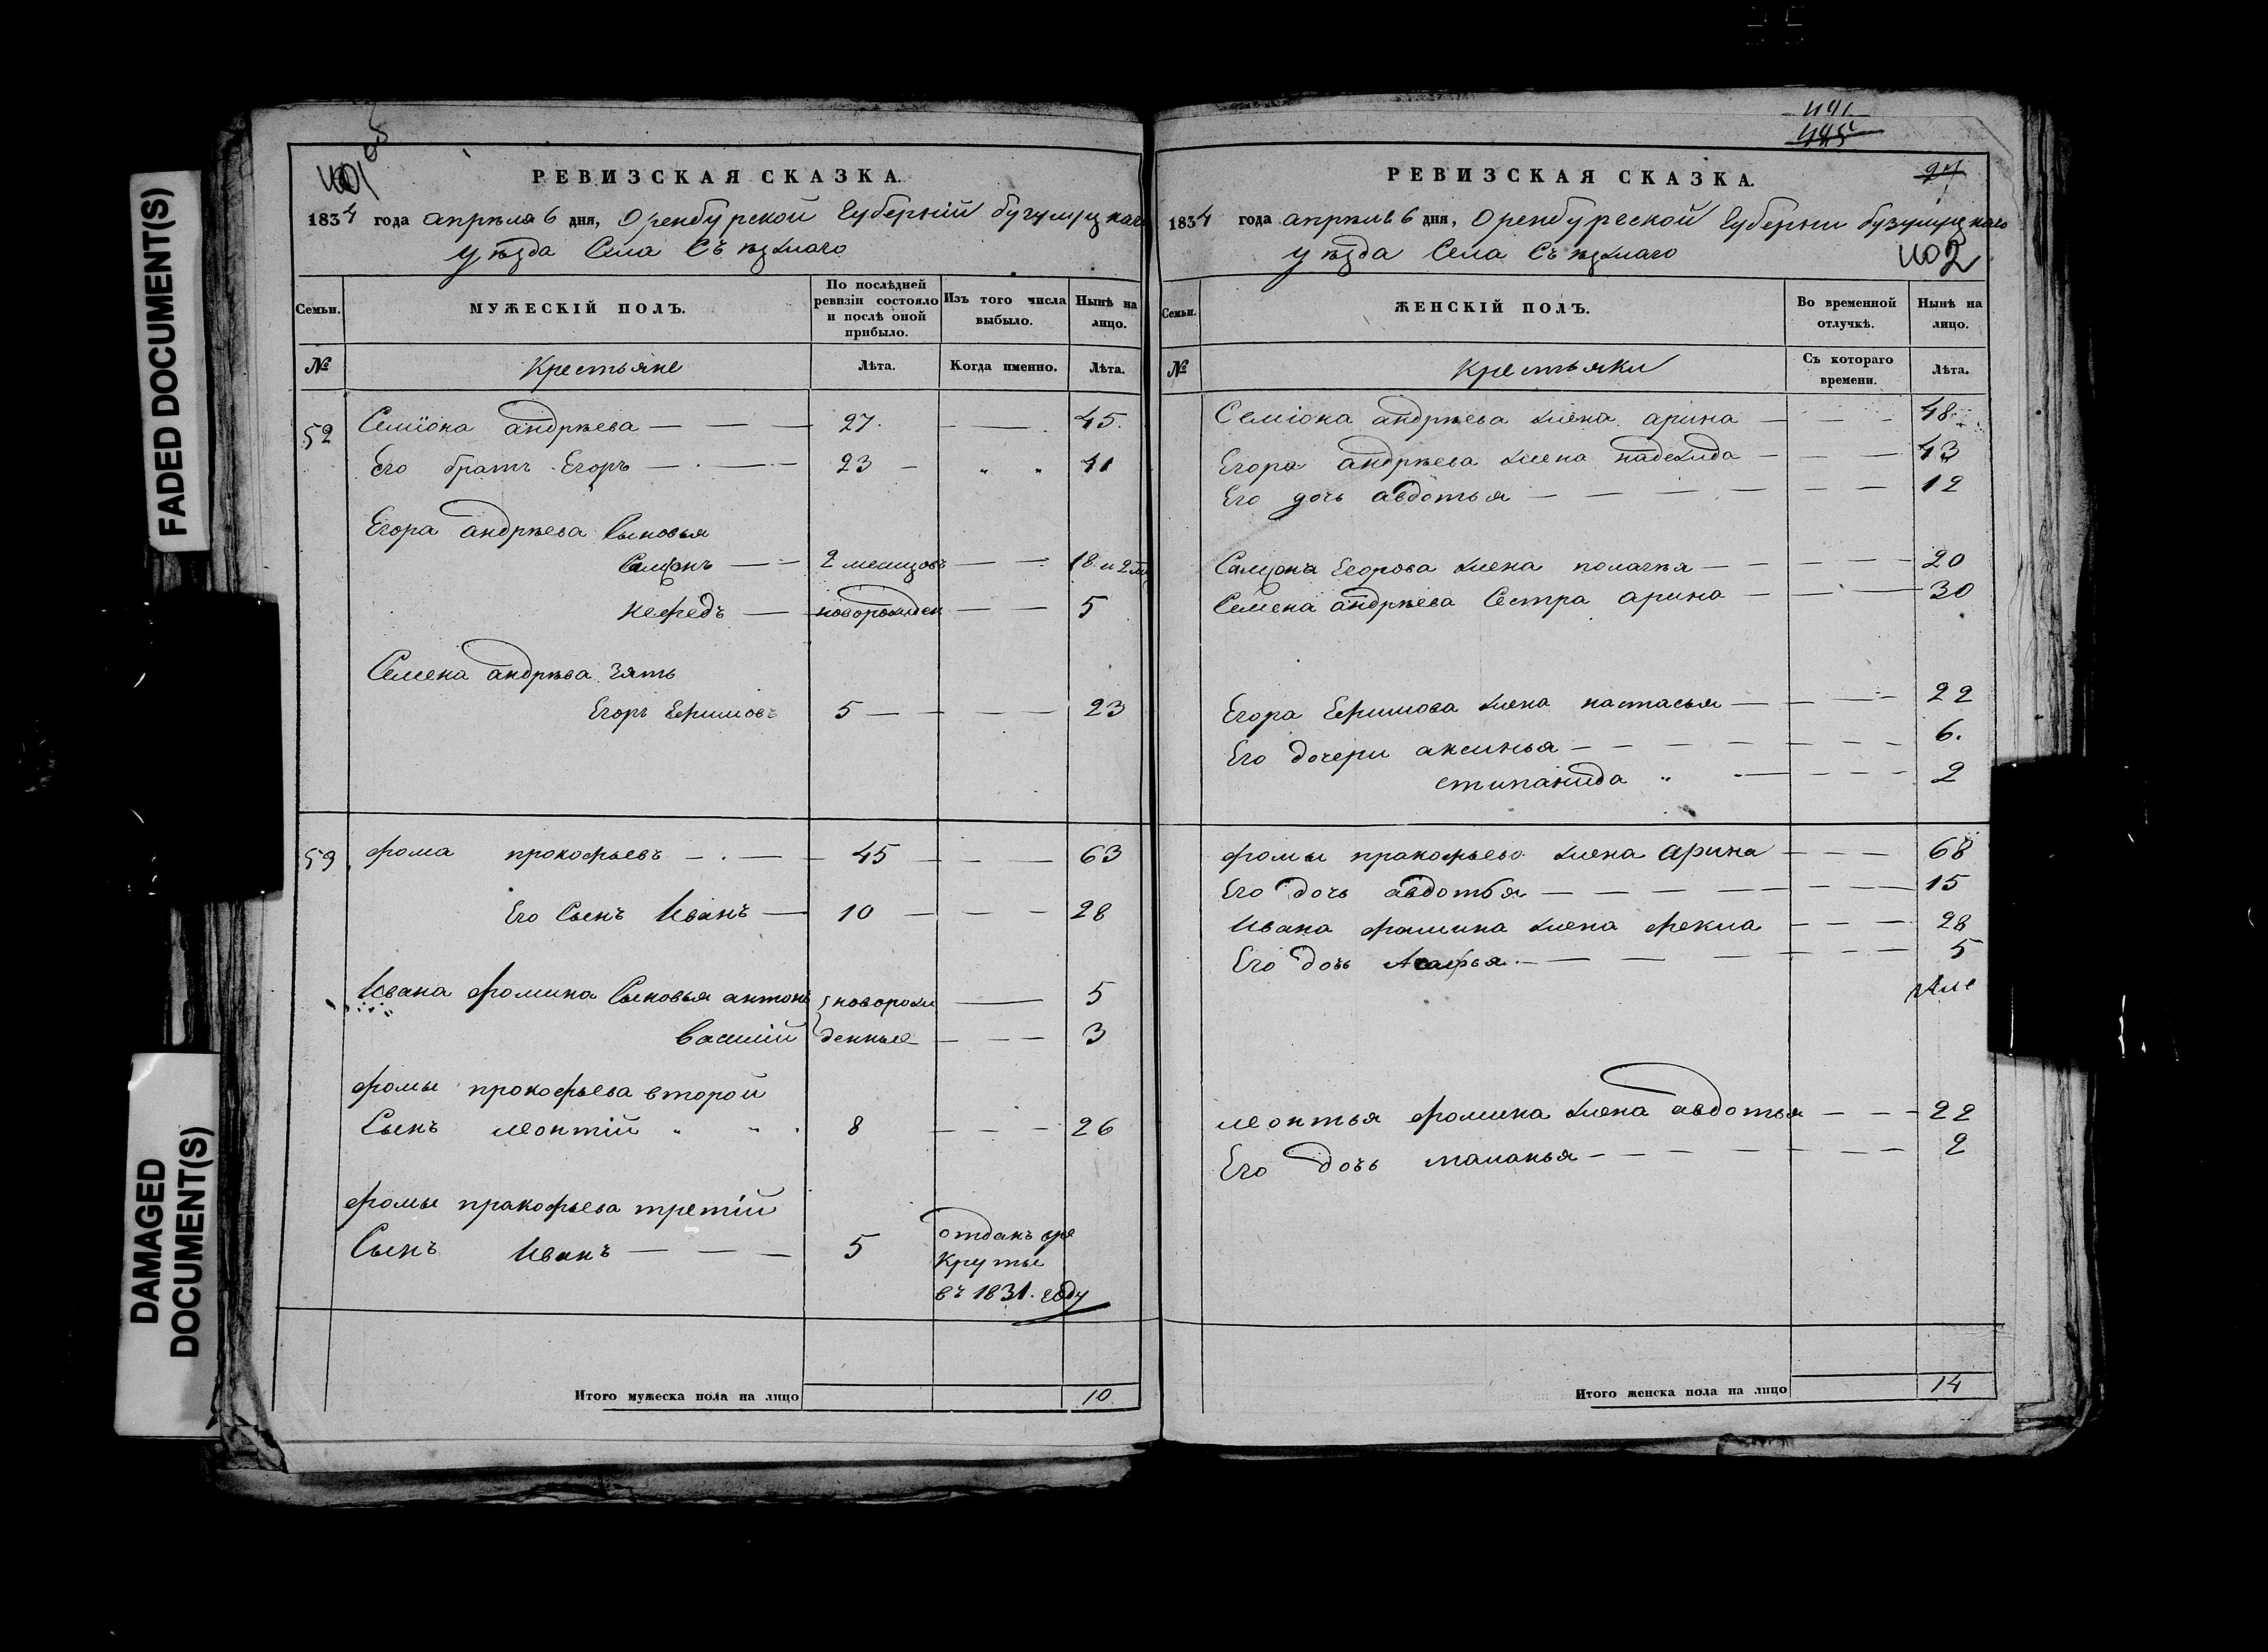 FADED DOCUMENT(S)
DAMAGED DOCUMENT(S)
401
РЕВИЗСКАЯ СКАЗКА.
1834 года апреля 6 дня, Оренбурской Губерній бугулуцкаго
уѣзда Села Съѣзжаго
Семьи. МУЖЕСКІЙ ПОЛЪ. По послѣдней ревизіи состояло и послѣ оной прибыло. Изъ того числа выбыло. Нынѣ на лицо.
№ Крестьяне Лѣта. Когда именно. Лѣта.
52 Семіона андрѣева — — — 27. — — 45.
Его братъ Егоръ — — — 23 — " " 41
Егора андрѣева Сыновья
Самсонъ — — 2 месицовъ — — 18 и 2 м
нефедъ — новорожден — — 5
Семена андрѣва зять
Егоръ Ефимовъ 5 — — — 23
53 фома прокофьевъ — — — 45 — — — 63
Его Сынъ Иванъ — 10 — — — 28
Ивана фомина Сыновья антонъ новорож — 5
василій денные — — — 3
фомы прокофьева второй
Сынъ леонтій " " 8 — — — 26
фомы пракофьева третій
Сынъ Иванъ — — — 5 отданъ вре
круты
въ 1831. году
Итого мужеска пола на лицо 10
441
445
24
402
РЕВИЗСКАЯ СКАЗКА.
1834 года апреля 6 дня, Оренбурской Губернии бузулуцкаго
уѣзда Села Съѣзжаго
Семьи. ЖЕНСКІЙ ПОЛЪ. Во временной отлучкѣ. Нынѣ на лицо.
№ Крестьяки Съ котораго времени. Лѣта.
Семіона андрѣева жена арина — — — 48
Егора андрѣева жена надежда — — — 43
Его дочь авдотья — — — — — — 12
Самсона Егорова жена полагѣя — — — — — 20
Семена андрѣева Сестра арина — — — 30
Егора Ефимова жена настасья — — — — 22
Его дочери аксинья — — — — — — — 6.
стипанида " — — — — 2
фомы пракофьева жена арина — — — 68
Его дочь авдотья — — — — — — — 15
Ивана фомина жена фекла — — — 28
Его дочь Агафья — — — — — — — 5
леонтья фомина жена авдотья — — — 22
Его дочь маланья — — — — — — — 2
Итого женска пола на лицо 14